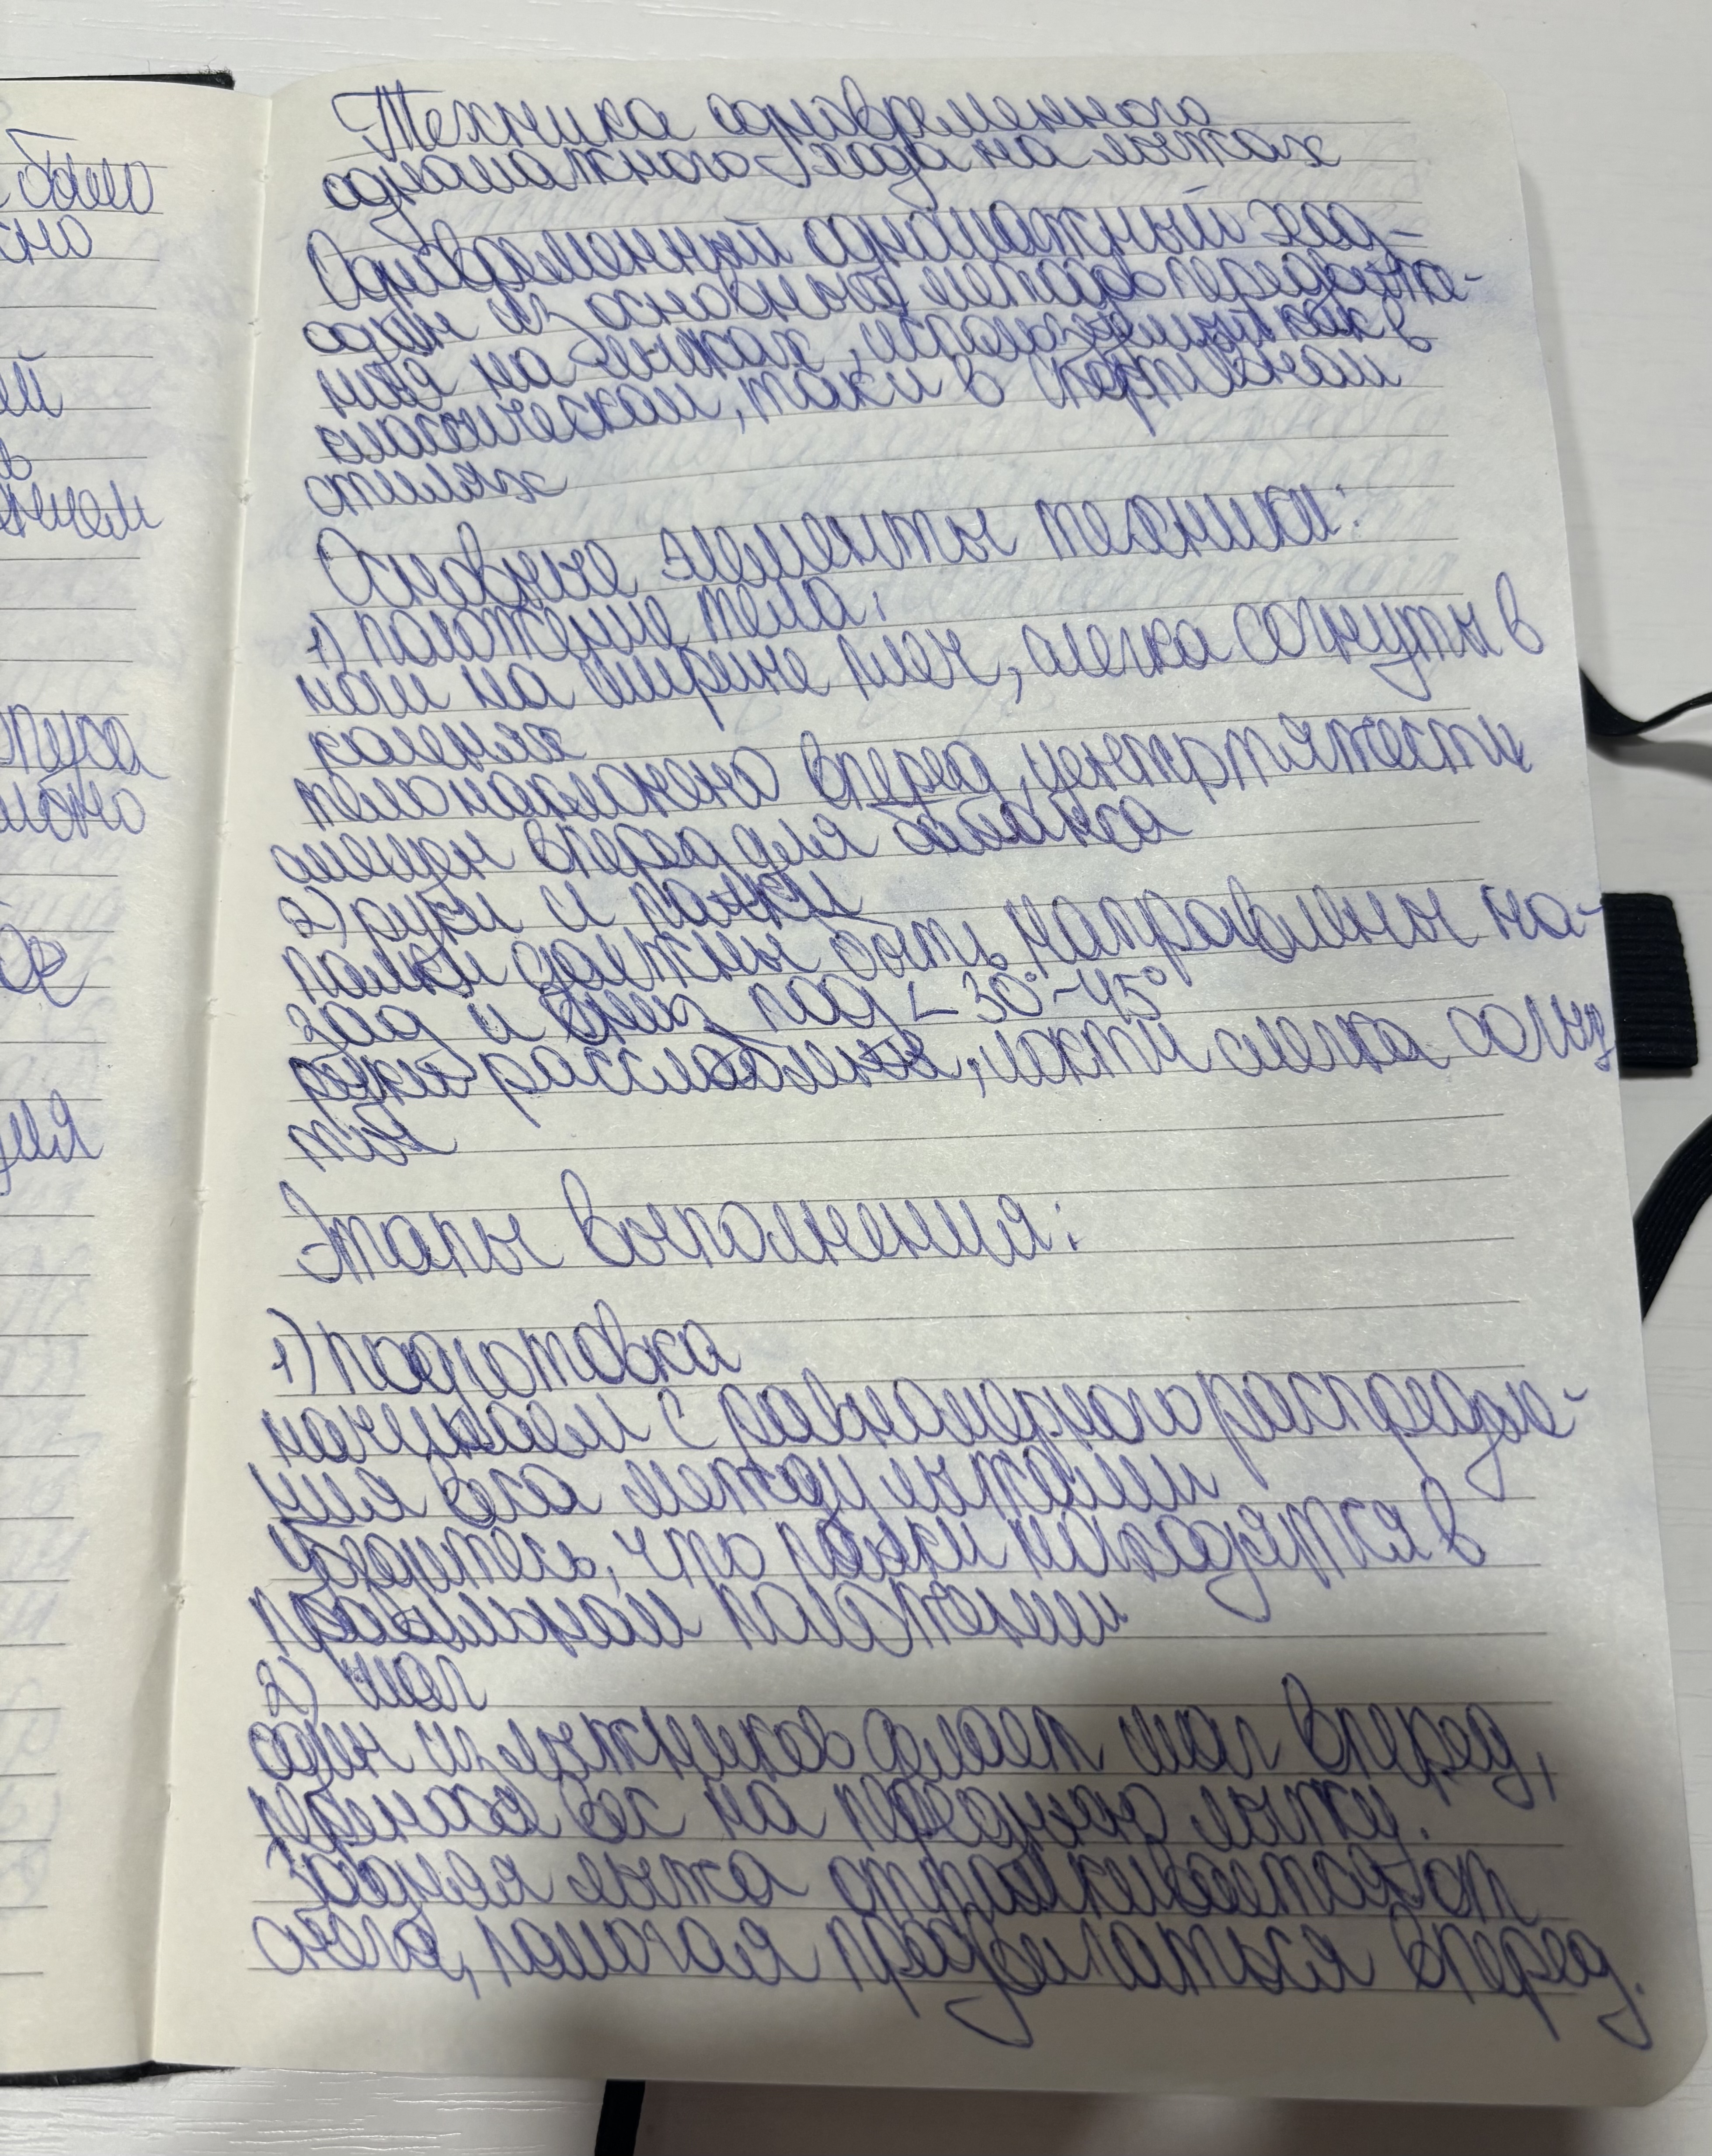 было
но
ей
в
Техника одновременного
одношажного хода на лыжах
Одновременный одношажный ход-
один из основных методов передвиже-
ния на лыжах, используемый как в
классическом, так и в спортивном
стилях
Основные элементы техники:
1) положение тела:
ноги на ширине плеч, слегка согнуты в
коленях
тело наклонено вперед, центр тяжести
смещен вперед для баланса
2) руки и палки
палки должны быть направлены на-
зад и вниз под ∠ 30°-45°
руки расслаблены, локти слегка согну
ты
Этапы выполнения:
1) подготовка
начинаем с равномерного распределе-
ния веса между лыжами
убедитесь, что палки находятся в
правильном положении
2) шаг
один из лыжников делает шаг вперед,
перенося вес на переднюю лыжу.
Задняя лыжа отталкивается от
снега, помогая продвигаться вперед.